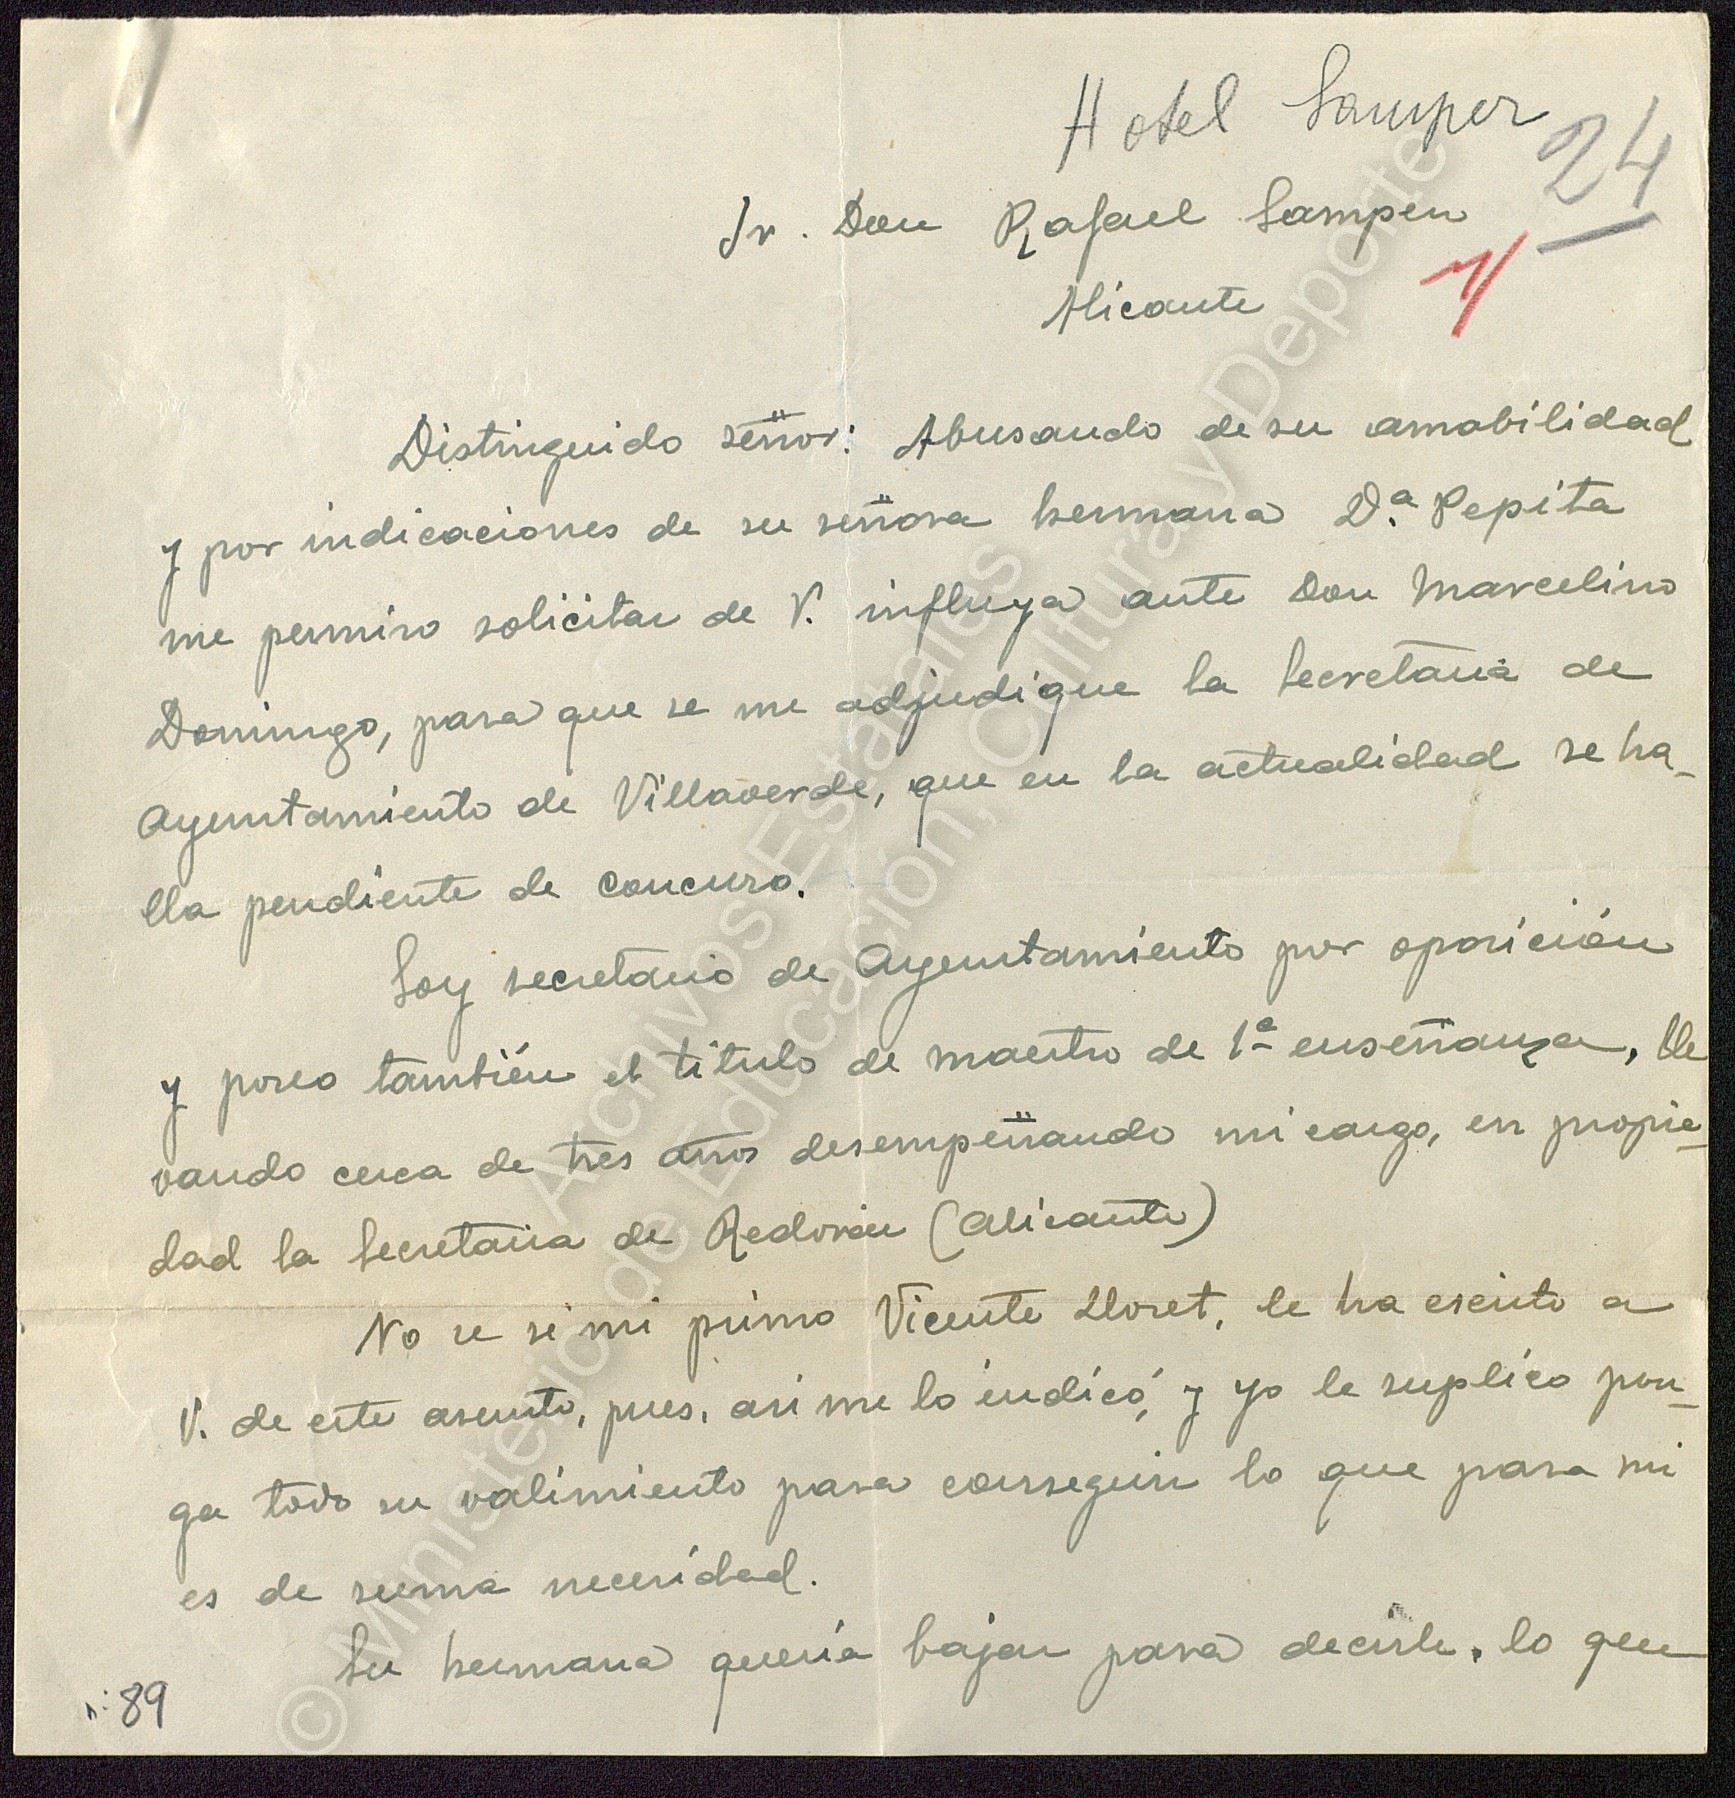 Hotel Samper
24
Sr. Don Rafael Samper
Alicante
Distinguido señor: Abusando de su amabilidad
y por indicaciones de su señora hermana D.ª Pepita
me permiro solicitar de V. influya ante Don Marcelino
Domingo, para que se me adjudique la Secretaria de
Ayuntamiento de Villaverde, que en la actualidad se ha-
lla pendiente de concurso.
Soy secretario de Ayuntamiento por oposición
y poseo también el titulo de maestro de 1ª enseñanza, lle
vando cerca de tres años desempeñando mi cargo, en propie-
dad la Secretaria de Redován (Alicante)
No se si mi primo Vicente Lloret, le ha escrito a
V. de este asunto, pues, asi me lo indicó, y yo le suplico pon-
ga todo su valimiento para conseguir lo que para mi
es de suma necesidad.
Su hermana quería bajar para decirle, lo que
n: 89
Archivos Estatales
© Ministerio de Educación, Cultura y Deporte